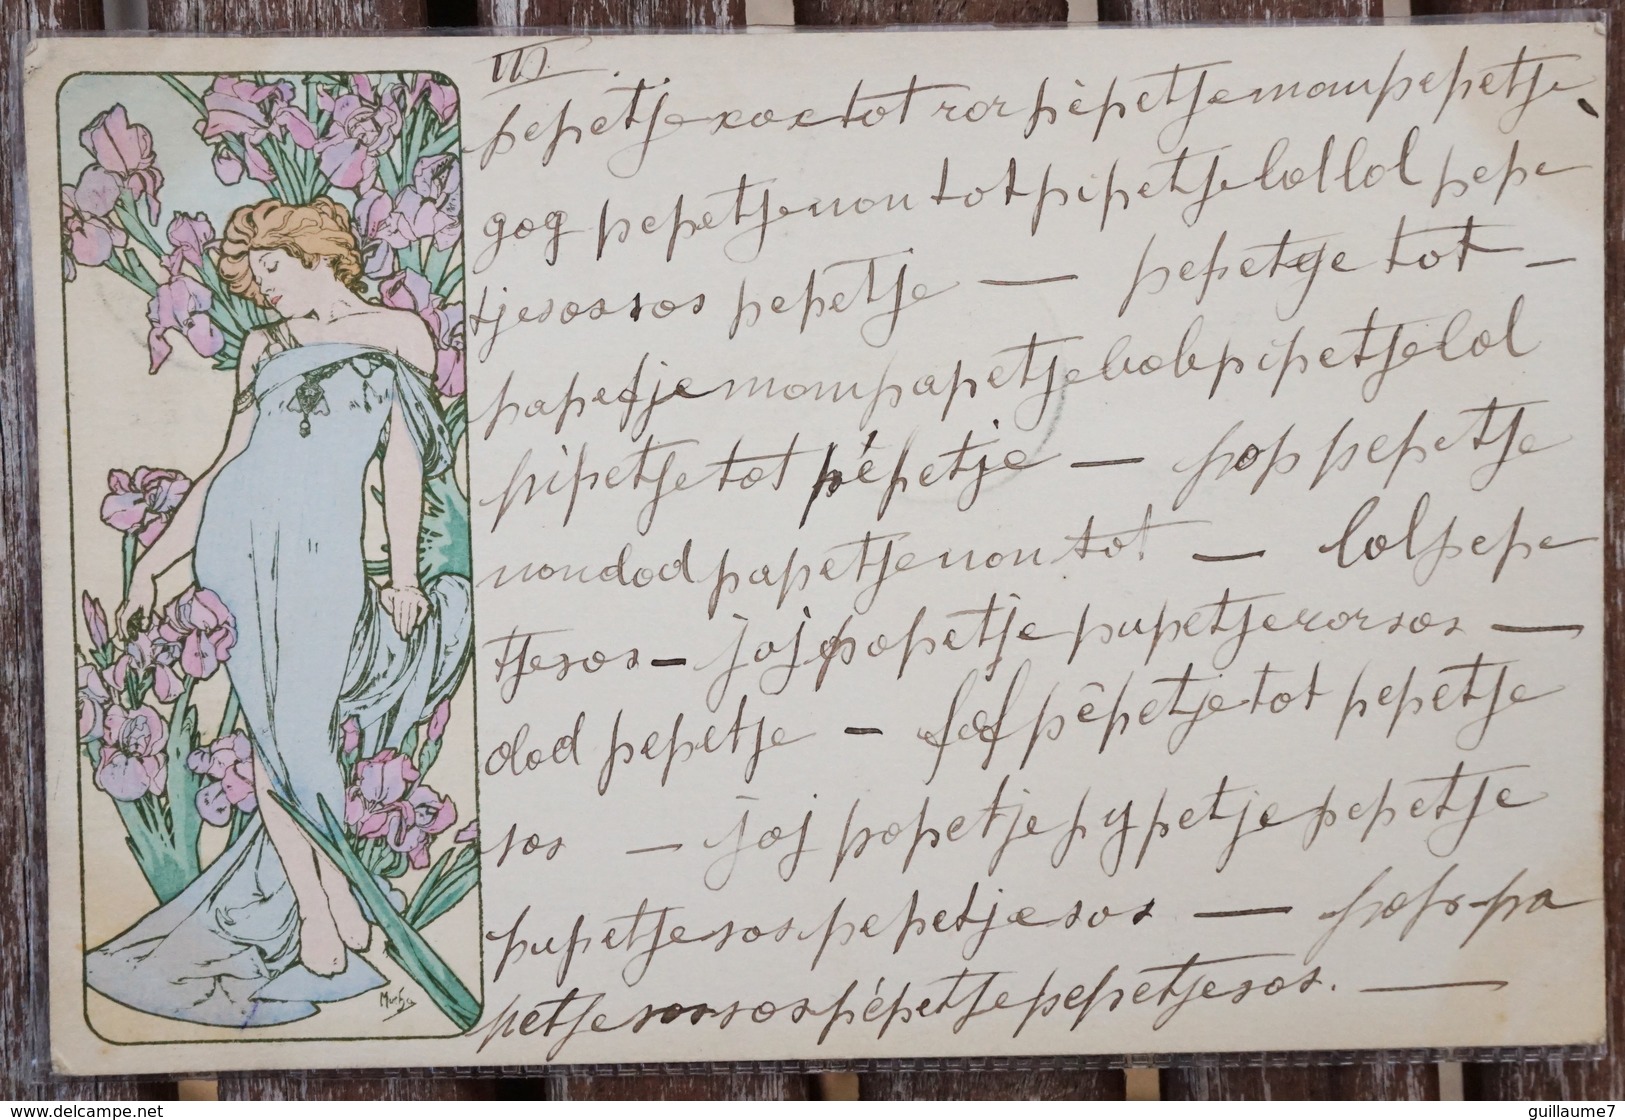 III.
pepetjexoxtot ror pèpetjemompepetje
gog pepetjenontotpipetjelollol pepe
tjesossos pepetje — pepetje tot —
papetjemompapetjebobpipetjelol
pipetjetot pépetje — pop pepetje
nondodpapetjenontot — lolpepe
tjesos — joj popetje pupetjerorsos —
dod pepetje — fof pêpetjetot pepetje
sos — joj popetjepypetjepepetje
pupetjesospepetjesos — pop pa
petjesossospépetjepepetjesos. —
Mucha
www.delcampe.net
guillaume7